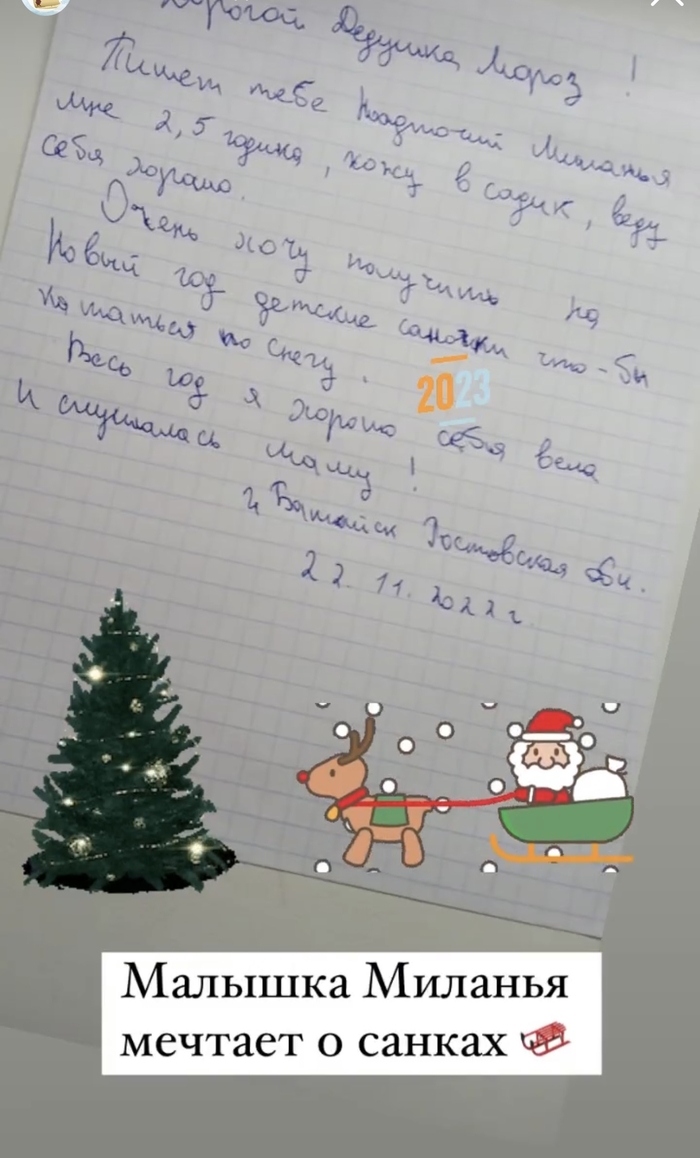 Дорогой Дедушка Мороз !
Пишет тебе Миланья
мне 2,5 годика , хожу в садик, веду
себя хорошо.
Очень хочу получить на
Новый год детские саночки что-бы
кататься по снегу .
2023
Весь год я хорошо себя вела
и слушалась маму !
г. Батайск Ростовская обл.
22. 11. 2022 г.
Малышка Миланья
мечтает о санках